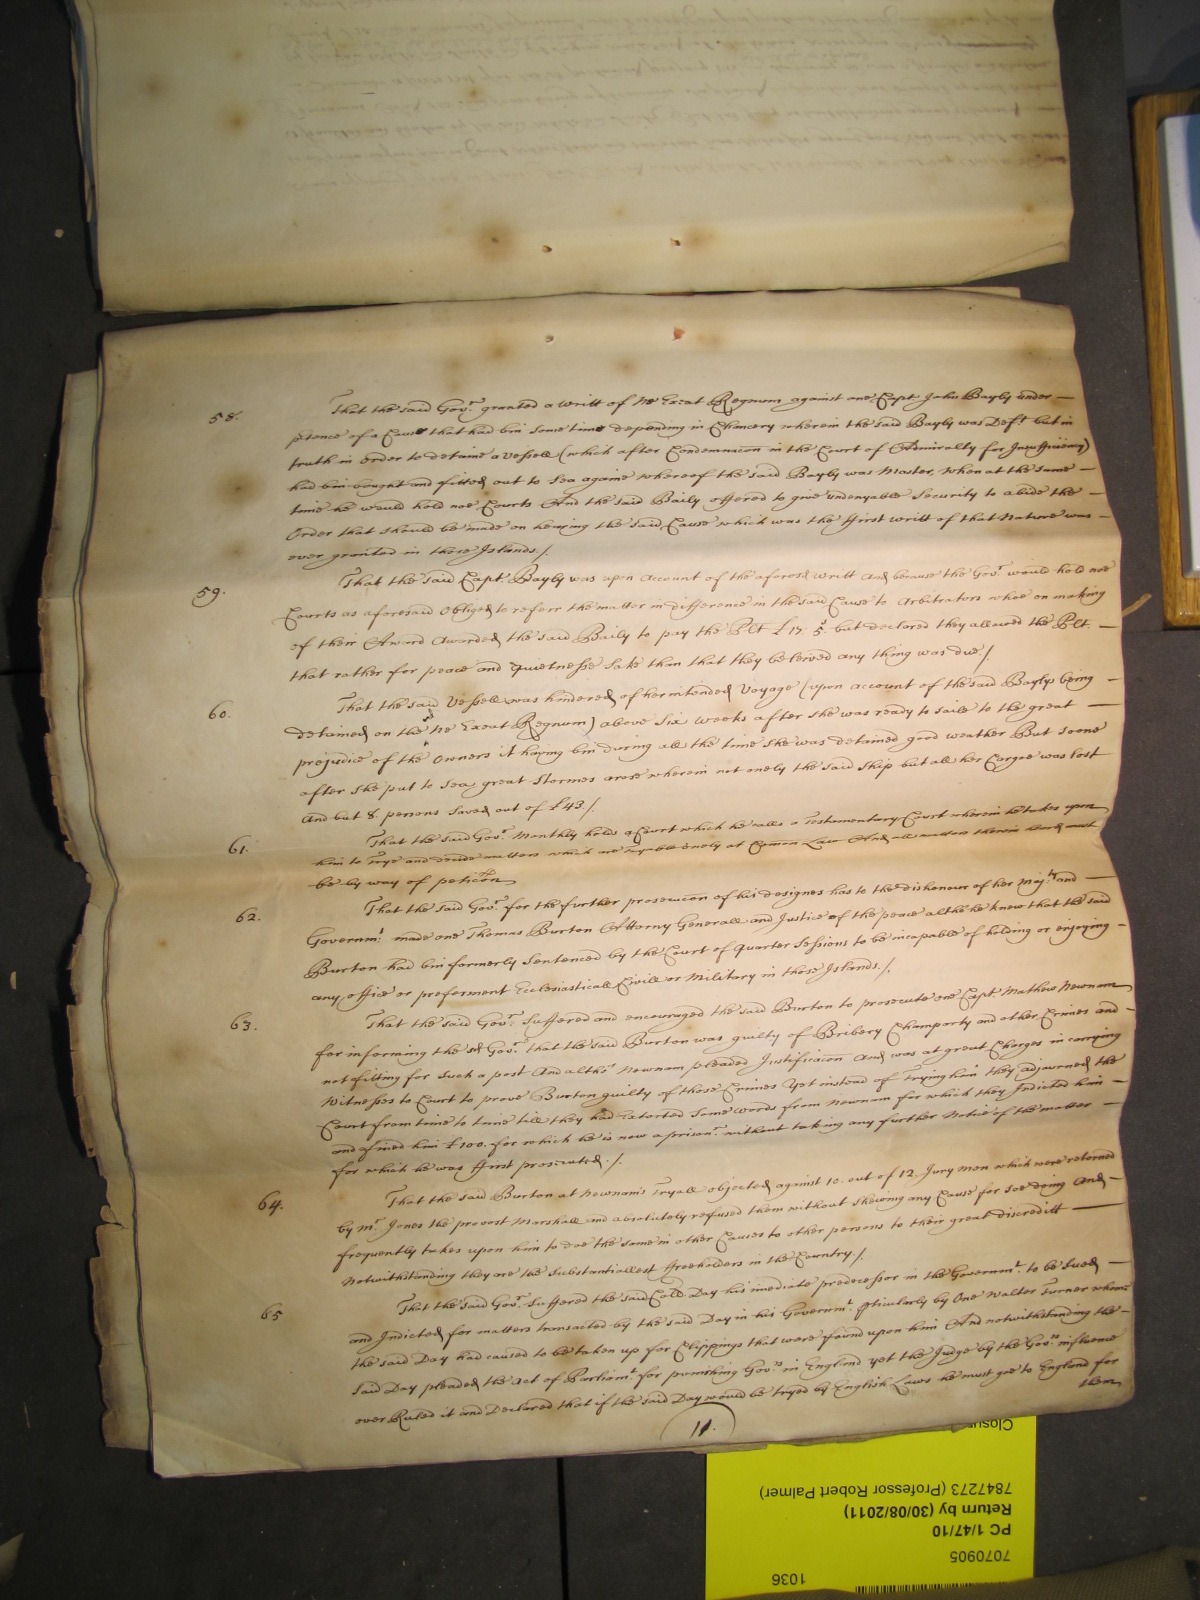 58. That the said Gov:r granted a Writt of Ne Exeat Regnum against one Capt: John Bayly under
ptence of a Cause that had bin some time depending in Chancery wherein the said Bayly was Def:t but in
truth in order to detaine a Vessell (which after Condemnacon in the Court of Admiralty for Insufficiency)
had bin bought and fitted out to Sea againe whereof the said Bayly was Master, when at the same
time he would hold noe Courts And the said Baily offered to give undenyable Security to abide the
Order that should be made on hearing the said Cause which was the first writt of that Nature was
ever granted in these Islands./.
59. That the said Capt: Bayly was upon Account of the aforesd writt And because the Gov:r would hold noe
Courts as aforesaid Obliged to referr the matter in difference in the said Cause to Arbitrators whoe on making
of their Award Awarded the said Baily to pay the Plt £17: 5: but declared they allowed the Plt.
that rather for peace and Quietnesse sake than that they beleived any thing was due /.
60. That the said Vessell was hindered of her intended Voyage (upon account of the said Baylys being
detained on the Ne Exeat Regnum) above Six weeks after she was ready to saile to the great
prejudice of the Owners it having bin during all the time she was detained good weather But soone
after she put to Sea great Stormes arose wherein not onely the said Ship but all her Cargoe was lost
And but 8 persons Saved out of £43./.
61. That the said Gov:r Monthly holds a Court which he calls a Testamentary Court wherein he takes upon
him to Trye and decide matters which are Tryable onely at Comon Law And all matters therein heard must
be by way of peticon
62. That the said Gov:r for the further prosecucon of his designes has to the dishonour of her Maj:ty and
Governm:t made one Thomas Burton Attorny Generall and Justice of the peace altho he knew that the said
Burton had bin formerly Sentenced by the Court of Quarter Sessions to be incapable of holding or enjoying
any office or preferment Ecclesiasticall Civill or Military in these Islands./.
63. That the said Gov:r Suffered and encouraged the said Burton to prosecute one Capt: Mathew Newnam
for informing the sd Gov:r that the said Burton was guilty of Bribery Champarty and other Crimes and
not fitting for Such a post And altho' Newnam pleaded Justificacon And was at great Charges in carrying
Witnesses to Court to prove Burton guilty of those Crimes Yet instead of Trying him they adjourned the
Court from time to time till they had Extorted Some words from Newnam for which they Indicted him
and afined him £100. for which he is now a prison:r without taking any further Notice of the matter
for which he was first prosecuted./.
64. That the said Burton at Newnam's Tryall objected against 10 out of 12 Jury men which were returned
by M:r Jones the provost Marshall and absolutely refused them without shewing any Cause for soe doing And
frequently takes upon him to doe the same in other Causes to other persons to their great discreditt
Notwithstanding they are the Substantiallest freeholders in the Country./.
65 That the said Gov:r Suffered the said Coll Day his imediate predecessor in the Governm:t to be Sued
and Indicted for matters transacted by the said Day in his Governm:t pticularly by One Walter Turner whom
the said Day had caused to be taken up for Clippings that were found upon him And notwithstanding the
Said Day pleaded the Act of Parliam:t for punishing Gov:rs in England yet the Judge by the Gov:rs influence
over Ruled it and Declared that if the said Day would be tryed by English Laws he must goe to England for
them
11.
1036
7070905
PC 1/47/10
Return by (30/08/2011)
7847273 (Professor Robert Palmer)